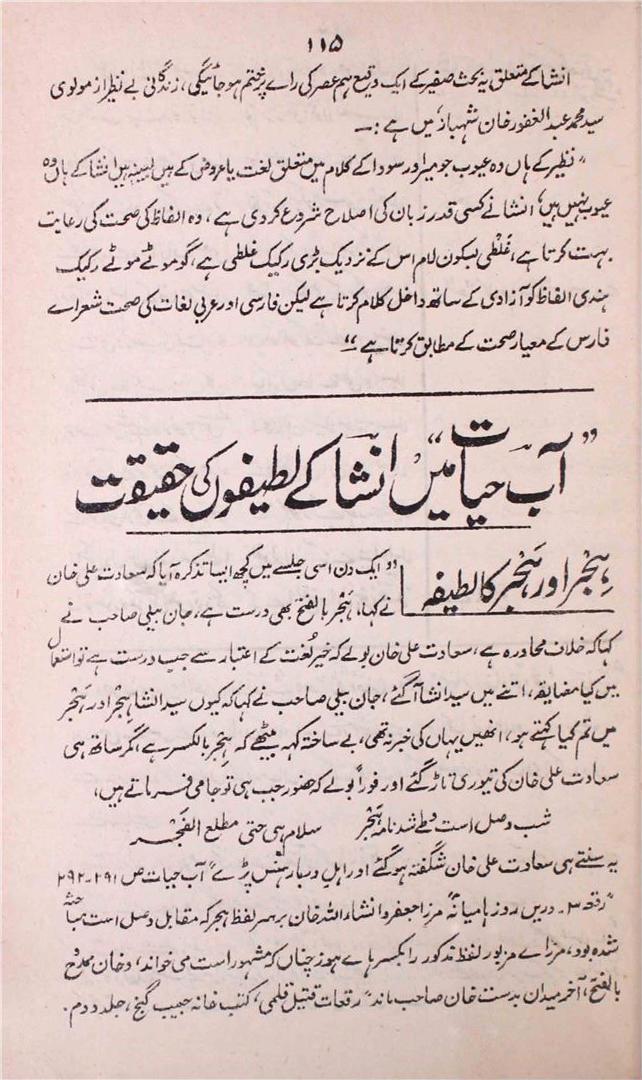 ۱۱۵
انشا کے متعلق یہ بحث صفیر کے ایک وقیع ہم عصر کی رائے پر ختم ہو جائیگی، زندگانی بے نظیر از مولوی
سید محمد عبد الغفور خان شہباز میں ہے :—
”نظیر کے ہاں وہ عیوب جو میر اور سودا کے کلام میں متعلق لغت یا عروض کے ہیں بعینہ ہیں انشا کے ہاں وہ
عیوب نہیں ہیں، انشا نے کسی قدر زبان کی اصلاح شروع کر دی ہے، وہ الفاظ کی صحت کی رعایت
بہت کرتا ہے، غَلْطی بسکون لام اس کے نزدیک بڑی رکیک غلطی ہے، گو موٹے موٹے رکیک
ہندی الفاظ کو آزادی کے ساتھ داخل کلام کرتا ہے لیکن فارسی اور عربی لغات کی صحت شعراے
فارس کے معیار صحت کے مطابق کرتا ہے“
”آب حیات“ میں انشا کے لطیفوں کی حقیقت
ہِجْر اور ہَجْر کا لطیفہ
”ایک دن اسی جلسے میں کچھ ایسا تذکرہ آیا کہ سعادت علی خان
نے کہا، ہَجْر بالفتح بھی درست ہے، جان بیلی صاحب نے
کہا کہ خلاف محاورہ ہے، سعادت علی خان بولے کہ خیر لُغت کے اعتبار سے جب درست ہے تو استعمال
میں کیا مضایقہ، اتنے میں سید انشا آ گئے، جان بیلی صاحب نے کہا کہ کیوں سید انشا ہِجْر اور ہَجْر
میں تم کیا کہتے ہو، انھیں یہاں کی خبر نہ تھی، بے ساختہ کہہ بیٹھے کہ ہِجر بالکسر ہے، مگر ساتھ ہی
سعادت علی خان کی تیوری تاڑ گئے اور فوراً بولے کہ حضور جب ہی تو جامی فرماتے ہیں،
شب وصل است و طے شد نامہ ہَجْر سلام ہی حتی مطلع الفَجْر
یہ سنتے ہی سعادت علی خان شگفتہ ہو گئے اور اہل دربار ہنس پڑے“ آب حیات ص ۲۹۱۔۲۹۲
”رقعہ ۳۔ دریں روزہا میانہ مرزا جعفر و انشاء اللہ خان بر سر لفظ ہجر کہ مقابل وصل است مباحثہ
شدہ بود، مرزاے مزبور لفظ مذکور را بکسر ہاے ہوز چناں کہ مشہور است می خواند، و خان ممدوح
بالفتح، آخر میدان بدست خان صاحب ماند“ رقعات قتیل قلمی، کتب خانہ حبیب گنج، جلد دوم.